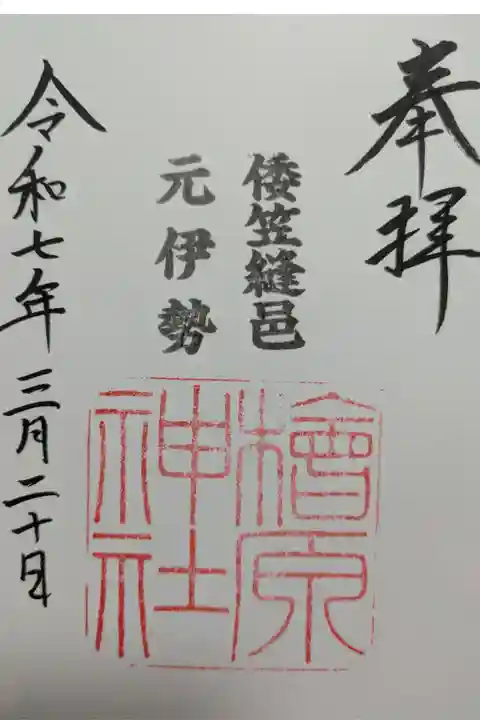 奉拝
倭笠縫邑
元伊勢
檜原神社
令和七年三月二十日